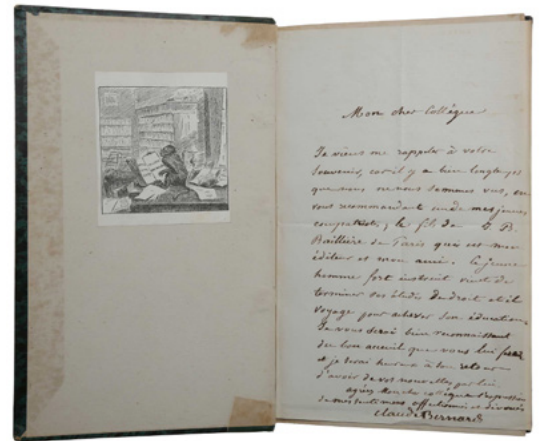 Mon cher Collègue
Je viens me rappeler à votre
souvenir, car il y a bien longtemps
que nous ne nous sommes vus, en
vous recommandant un de mes jeunes
compatriotes, le fils de J. B.
Baillière de Paris qui est mon
éditeur et mon ami. Ce jeune
homme fort instruit vient de
terminer ses études de droit et il
voyage pour achever son éducation.
Je vous serai bien reconnaissant
du bon accueil que vous lui ferez
et je serai heureux à son retour
d'avoir de vos nouvelles par lui.
agréez mon cher collègue l'expression
de mes sentimens affectueux et dévoués
Claude Bernard